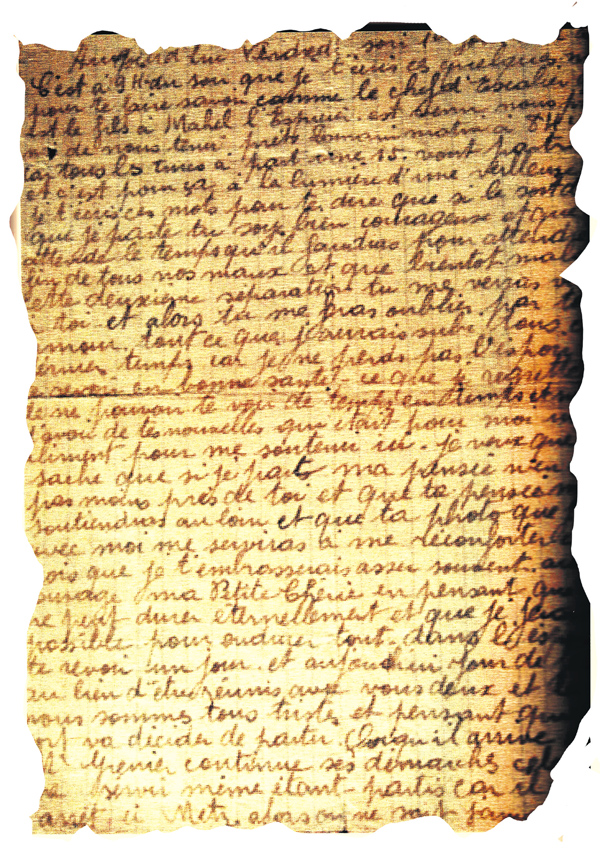 Aujourd'hui Vendredi soir
C'est à 9H du soir que je t'écris ces quelques
pour te faire savoir comme le chef d'Escalier
est le fils à Mahel l'Espicier est venu nous
de nous tenir prêts demain matin à 8H
car tous les
et c'est pour ça à la lumière d'une veilleuse
je t'écris ces mots pour te dire que si le sort
que je parte tu sois bien courageuse et que
attende le temps qu'il faudras pour attend
fin de tous nos maux et que bientôt mal
cette deuxième séparation tu me verras
toi et alors tu me feras oublier par
amour tout ce que j'aurais subi tous
dernier temps car je ne perds pas l'espoir
te revoir en bonne santé ce que je regrette
de ne pouvoir te voir de temps en temps et
d'avoir de tes nouvelles qui était pour moi
aliment pour me soutenir ici. je veux que
sache que si je parts ma pensée n'en
pas moins près de toi et que ta pensée
soutiendras au loin et que ta photo que
avec moi me serviras à me réconforter
fois que je t'embrasserais assez souvent.
ourage ma Petite Chérie en pensant que
ne peut durer eternellement et que je ferai
possible pour endurer tout dans l'espoir
te revoir un jour. et aujourd'hui jour de
au lieu d'etre réunis avec vous deux et
nous sommes tous tristes et pensant que
sort va décider de partir. Quoiqu'il arrive
Grenier continue ses démarches
servir même étant partis car il
arret ici Metz alors on ne sait jam